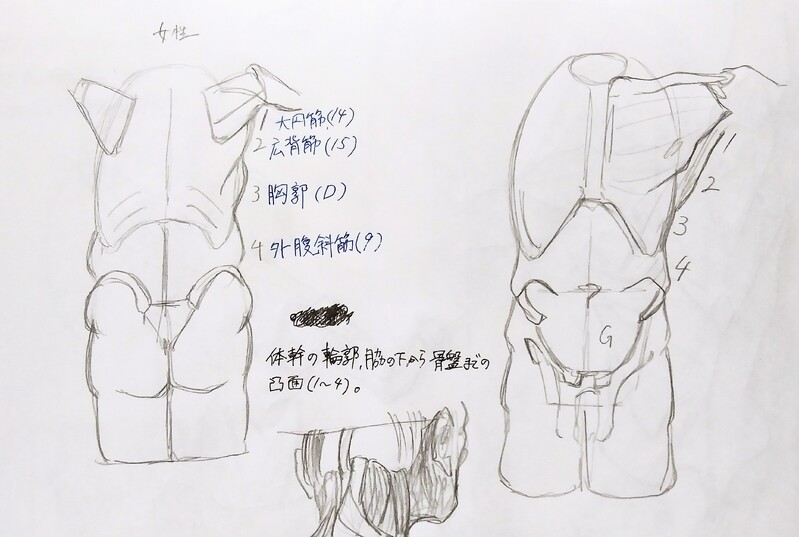 女性
1 大円筋(14)
2 広背筋(15)
3 胸郭(D)
4 外腹斜筋(9)
体幹の輪郭,脇の下から骨盤までの
凸面(1〜4)。
1
2
3
4
G